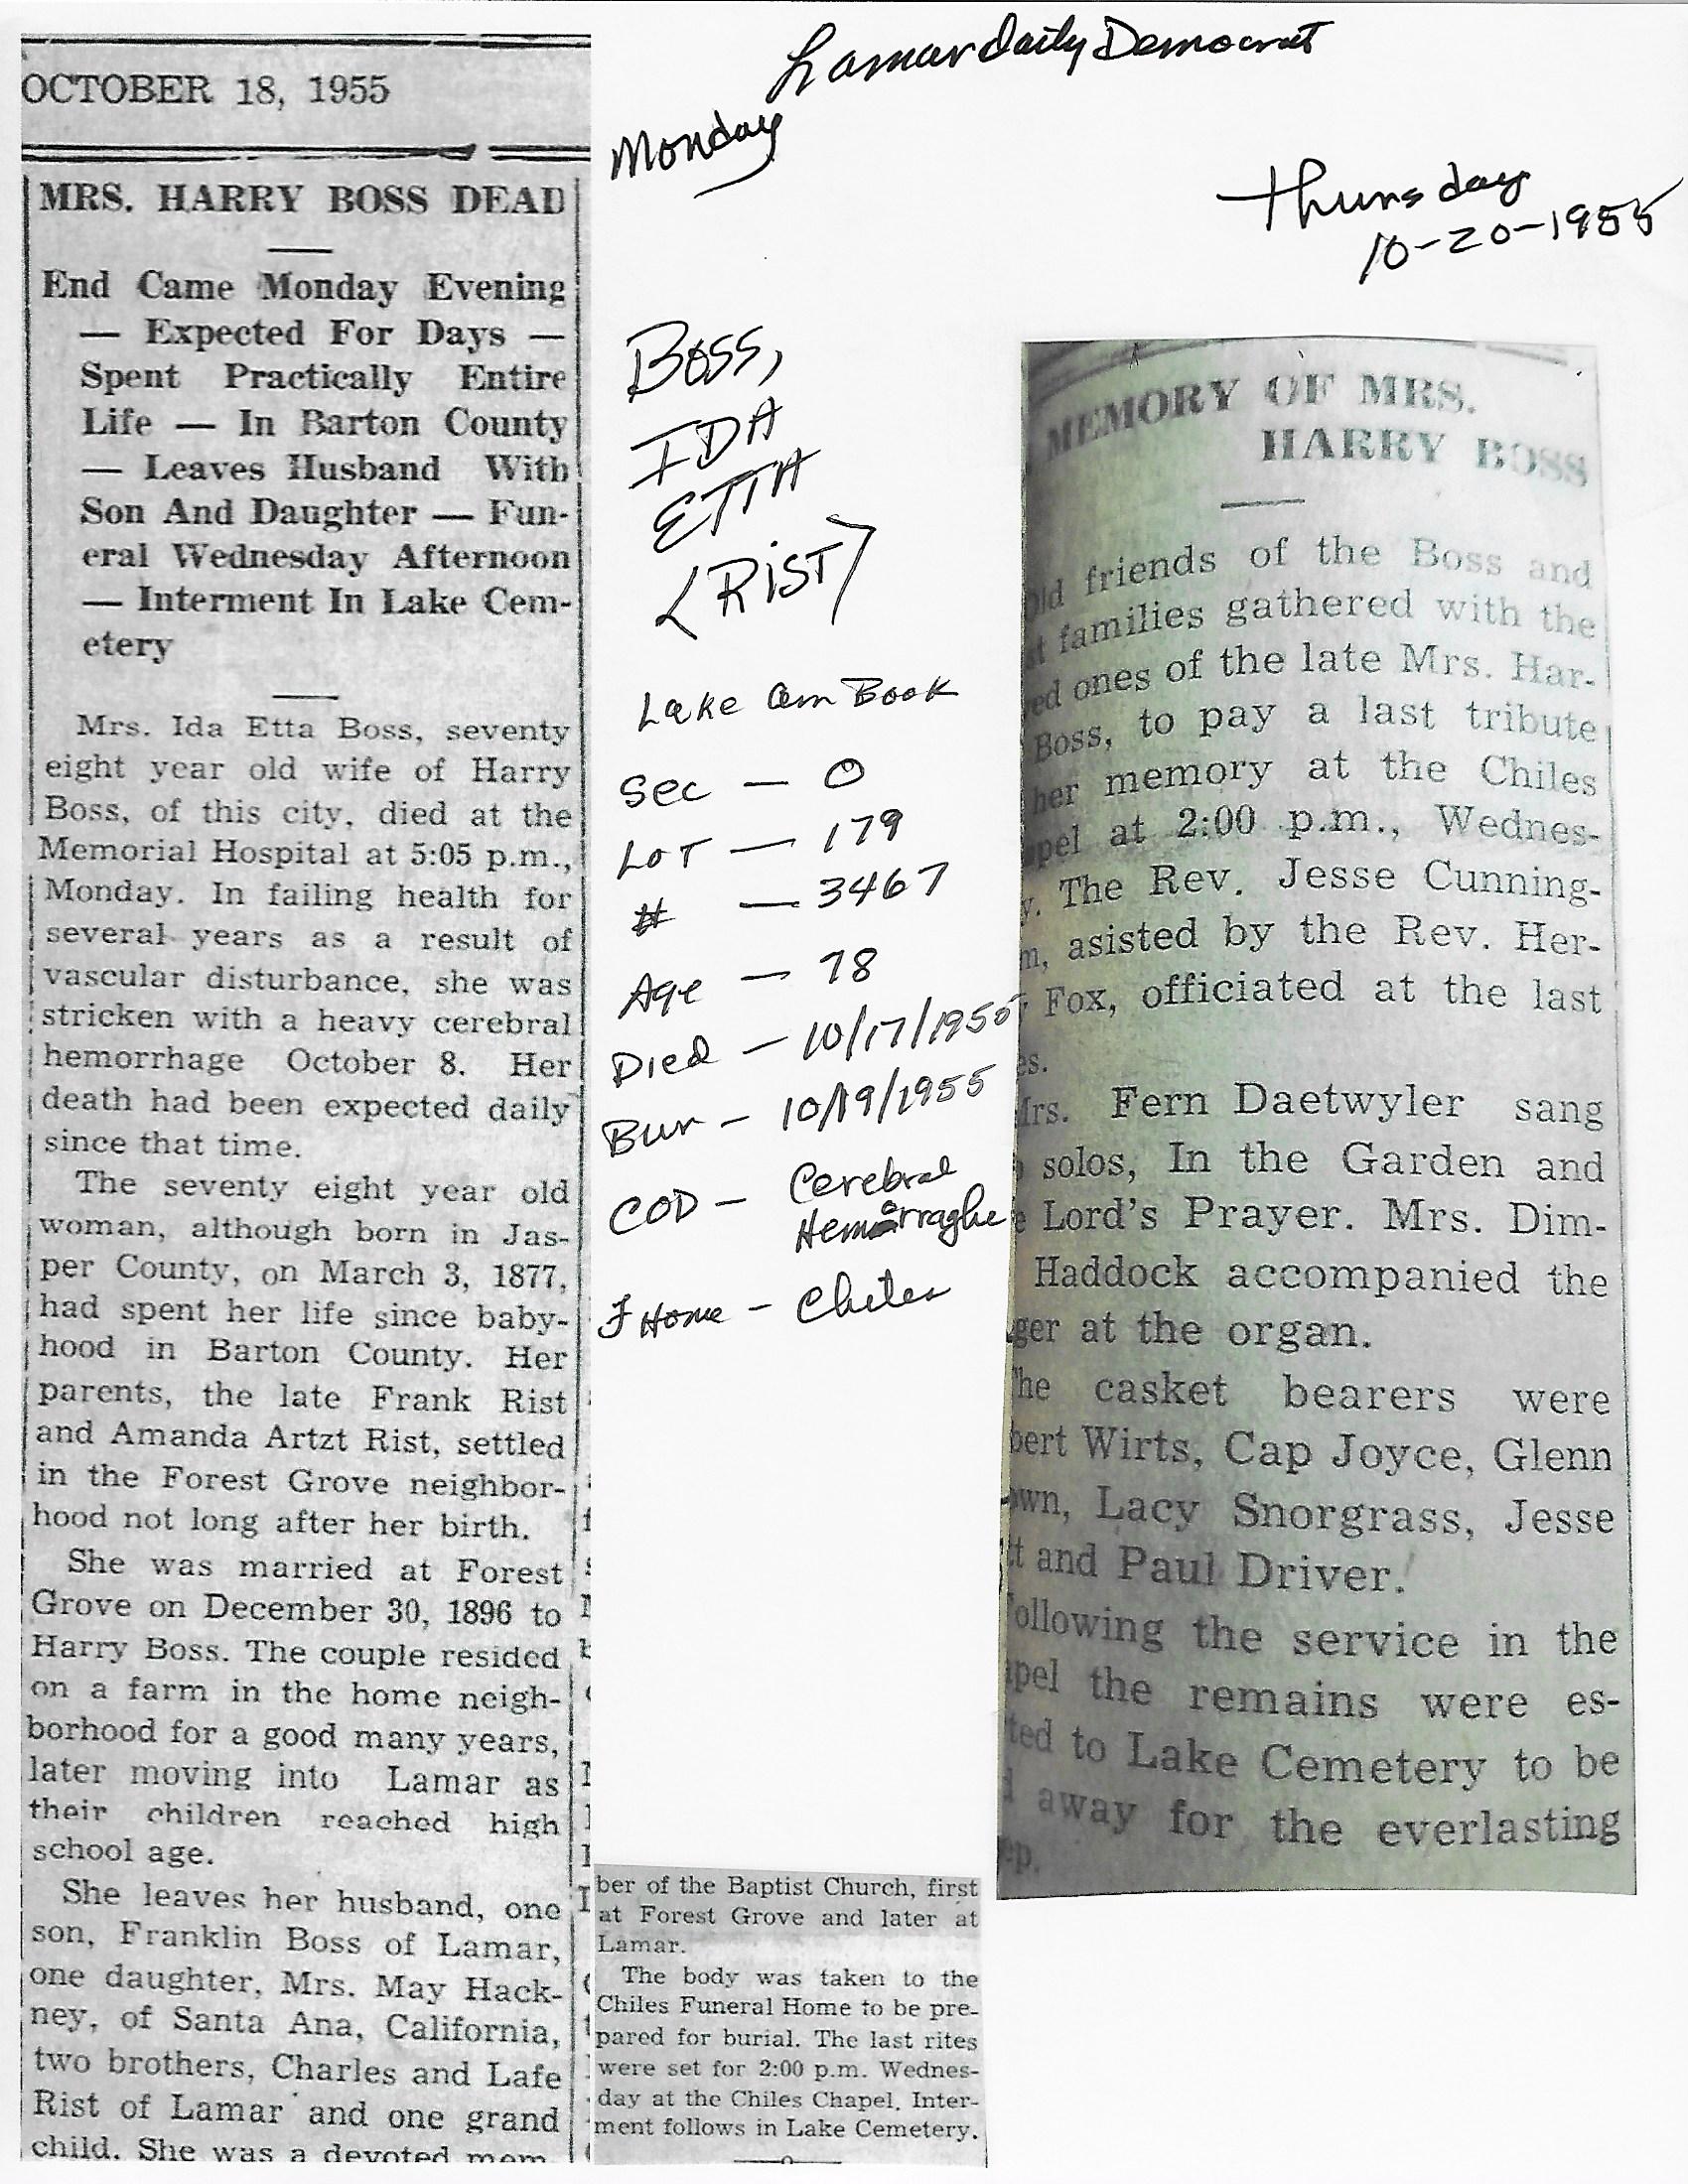 Lamar Daily Democrat
Monday
Thursday
10-20-1955
OCTOBER 18, 1955
MRS. HARRY BOSS DEAD
End Came Monday Evening
— Expected For Days —
Spent Practically Entire
Life — In Barton County
— Leaves Husband With
Son And Daughter — Fun-
eral Wednesday Afternoon
— Interment In Lake Cem-
etery
Mrs. Ida Etta Boss, seventy
eight year old wife of Harry
Boss, of this city, died at the
Memorial Hospital at 5:05 p.m.,
Monday. In failing health for
several years as a result of
vascular disturbance, she was
stricken with a heavy cerebral
hemorrhage October 8. Her
death had been expected daily
since that time.
The seventy eight year old
woman, although born in Jas-
per County, on March 3, 1877,
had spent her life since baby-
hood in Barton County. Her
parents, the late Frank Rist
and Amanda Artzt Rist, settled
in the Forest Grove neighbor-
hood not long after her birth.
She was married at Forest
Grove on December 30, 1896 to
Harry Boss. The couple resided
on a farm in the home neigh-
borhood for a good many years,
later moving into Lamar as
their children reached high
school age.
She leaves her husband, one
son, Franklin Boss of Lamar,
one daughter, Mrs. May Hack-
ney, of Santa Ana, California,
two brothers, Charles and Lafe
Rist of Lamar and one grand
child. She was a devoted mem-
ber of the Baptist Church, first
at Forest Grove and later at
Lamar.
The body was taken to the
Chiles Funeral Home to be pre-
pared for burial. The last rites
were set for 2:00 p.m. Wednes-
day at the Chiles Chapel. Inter-
ment follows in Lake Cemetery.
BOSS,
IDA
ETTA
<RIST>
Lake Cem Book
Sec — O
LOT — 179
# — 3467
Age — 78
Died — 10/17/1955
Bur — 10/19/1955
COD — Cerebral
Hemorraghe
F Home — Chiles
MEMORY OF MRS.
HARRY BOSS
Old friends of the Boss and
t families gathered with the
ed ones of the late Mrs. Har-
Boss, to pay a last tribute
her memory at the Chiles
apel at 2:00 p.m., Wednes-
y. The Rev. Jesse Cunning-
m, asisted by the Rev. Her-
Fox, officiated at the last
es.
Mrs. Fern Daetwyler sang
solos, In the Garden and
e Lord's Prayer. Mrs. Dim-
Haddock accompanied the
ger at the organ.
The casket bearers were
bert Wirts, Cap Joyce, Glenn
own, Lacy Snorgrass, Jesse
tt and Paul Driver.
Following the service in the
apel the remains were es-
ted to Lake Cemetery to be
d away for the everlasting
ep.